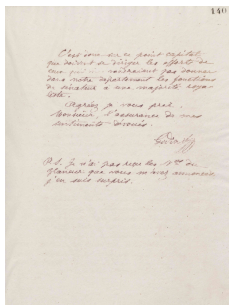 140
C'est donc sur ce point capital
que doivent se diriger les efforts de
ceux qui ne voudraient pas donner
dans notre département les fonctions
de sénateur à une majorité roya
liste.
Agréez je vous prie
Monsieur, l'assurance de mes
sentiments dévoués.
Godin
P.S. Je n'ai pas reçu les Nos du
glaneur que vous
j'en suis surpris.